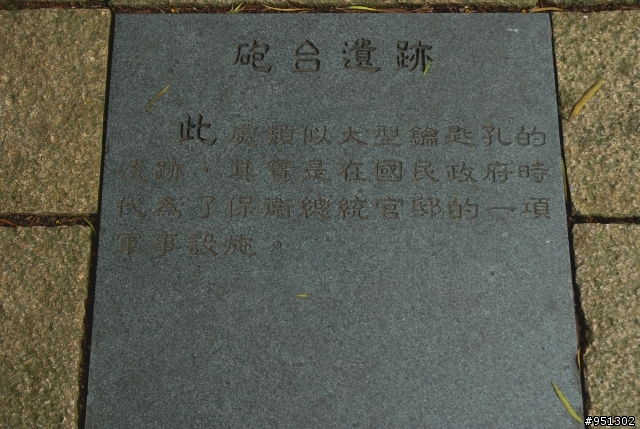 砲台遺跡
此處類似大型鑰匙孔的
遺跡，其實是在國民政府時
代為了保衛總統官邸的一項
軍事設施。
#951302